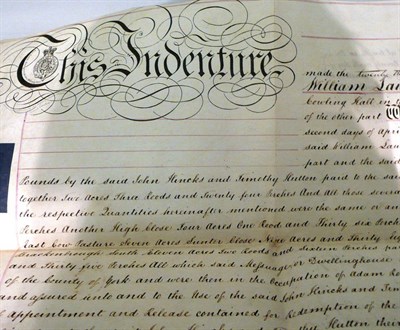 This Indenture
made the twenty
William
Cowling Hall in
of the other part
second days of April
said William
part and the said
Pounds by the said John Hincks and Timothy Hutton paid to the said
together Two Acres Three Roods and Twenty four Perches And All those several
the respective Quantities hereinafter mentioned were the same or an
Perches Another High Close Four Acres One Rood and Thirty six Perches
East Cow Pasture Seven Acres Sunter Close Nine Acres and Thirty
North Eleven Acres Two Roods and
and Thirty five Perches All which said Messuage or Dwellinghouse
of the County of York and were then in the Occupation of Adam
and assured unto and to the Use of the said John Hincks and
Appointment and Release contained for Redemption of the
Hutton their